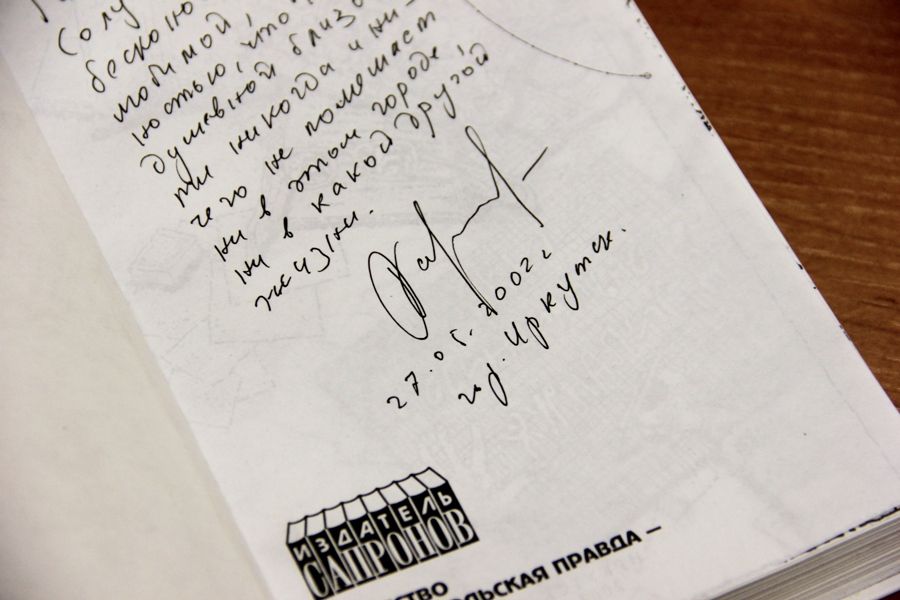 Солу
беско
мобимой,
ностью, что
душевной близо
ти никогда и ни-
чего не помешает
ни в этом городе,
ни в какой другой
жизни.
27.05.2002г
гор. Иркутск.
ИЗДАТЕЛЬ
САПРОНОВ
СТВО
ЛЬСКАЯ ПРАВДА —